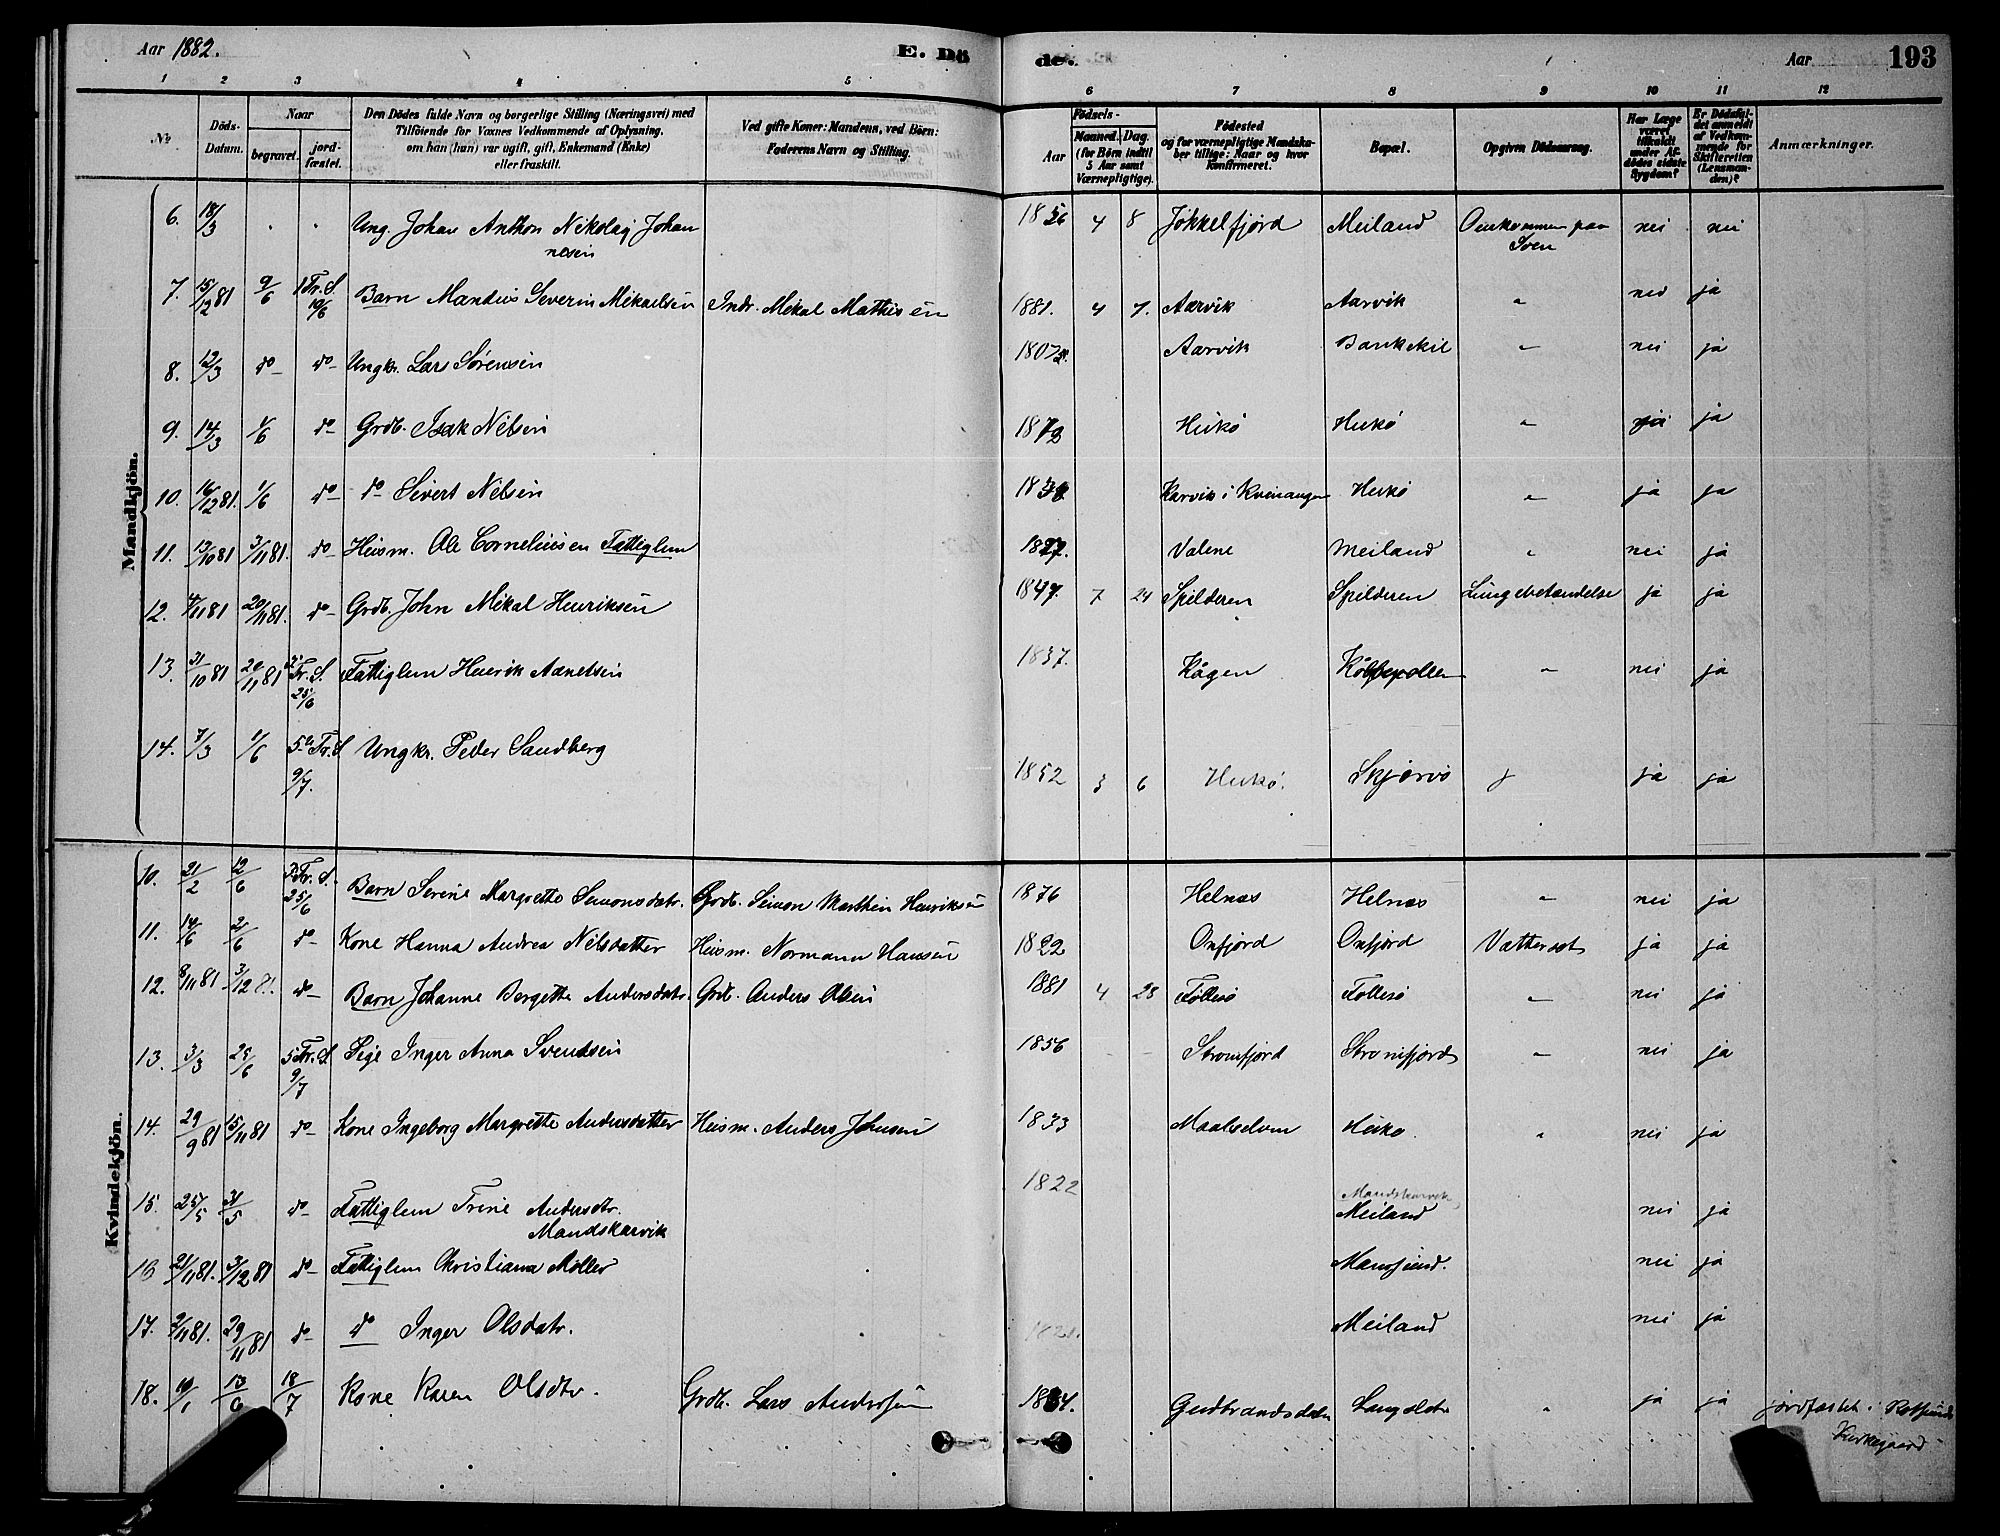 Aar 1882.
E. Dö
de.
Aar
193
1 2 3 4 5 6 7 8 9 10 11 12
No
Döds-
Datum.
Naar
begravet.
jord-
fæstet.
Den Dödes fulde Navn og borgerlige Stilling (Næringsvei) med
Tilföiende for Voxnes Vedkommende af Oplysning,
om han (hun) var ugift, gift, Enkemand (Enke)
eller fraskilt.
Ved gifte Koner: Mandens, ved Börn:
Faderens Navn og Stilling.
Födsels-
Aar
Maaned. Dag.
(for Börn indtil
5 Aar samt
Værnepligtige).
Födested
og for værnepligtige Mandska-
ber tillige: Naar og hvor
konfirmeret.
Bopæl.
Opgiven Dödsaarsag.
Har Læge
været
tilkaldt
under Af-
dödes sidste
Sygdom?
Er Dödsfal-
det anmeldt
af Vedkom-
mende for
Skifteretten
(Lensman-
den)?
Anmærkninger.
Mandkjön.
6. 18/3 " " Ung. Johan Anthon Nikolaj Johan 1856 4 8 Jökkelfjord Meiland Omkommen paa nei nei
nesen Söen
7. 15/12 81 9/6 1 Tr. S. Barn Mandius Severin Mikaelsen Indr. Mikal Mathisen 1881. 4 7. Aarvik Aarvik " nei ja
19/6
8. 12/3 do do Ungkr. Lars Sörensen Aarvik nei ja
9. 14/3 1/6 do Grdb. Isak Nilsen Hukö Hukö " ja
10. 16/12 81. 1/6 do do Sivert Nilsen Karvik i Kvenangen Hukö " ja ja
11. 13/10 81 3/11 81. do Husm. Ole Corneliusen Fattiglem Valene Meiland " nei ja
12. 4/11 81 20/11 81. do Grdb. John Mikal Henriksen 1847. 7 24 Spilderen Spilderen Lungebetændelse ja ja
13. 31/10 81 20/11 81 Tr. S. Fattiglem Henrik Aanetsen 1837. Kågen " nei ja
25/6
14. 7/3 1/6 5te Tr. S Ungkr. Peder Sandberg 1852 3 6 Hukö. Skjervö ja ja
9/7.
Kvindekjön.
10. 21/2 12/6 3 Tr. S. Barn Serine Margrethe Simonsdatr. Grdb. Simon Marthin Henriksen 1876 Helnæs Helnæs " nei ja
25/6
11. 14/6 2/6 do Kone Hanna Andrea Nilsdatter Husm. Normann Hansen 1822 Oxfjord Oxfjord Vattersot ja ja
12. 8/11 81 3/12 81. do Barn Johanne Bergette Andersdatr. Grdb. Anders Olsen 1881 4 23 Follesö Follesö " nei ja
13. 3/3 25/6 5 Tr. S. Pige Inger Anna Svendsen 1856 Stromfjord Stromfjord " nei ja
9/7
14. 29/9 81 15/11 81 do Kone Ingeborg Margrethe Andersdatter Husm. Anders Johnsen 1833 Maalselven Hukö. " nei ja
15. 25/5 31/5 do Fattiglem Trine Andersdtr. 1822 Mandskarvik
Mandskarvik Meiland nei ja
16 21/11 81. 3/12 81 do Fattiglem Christiana Möller nei ja
17. 2/11 81. 29/11 81 do do Inger Olsdatr. Meiland nei ja
18. 10/1 13/6 18/7 Kone Karen Olsdtr. Grdb. Lars Andersen Gudbrandsdalen " ja ja jordfæstet i Rotsund
Kirkegaard